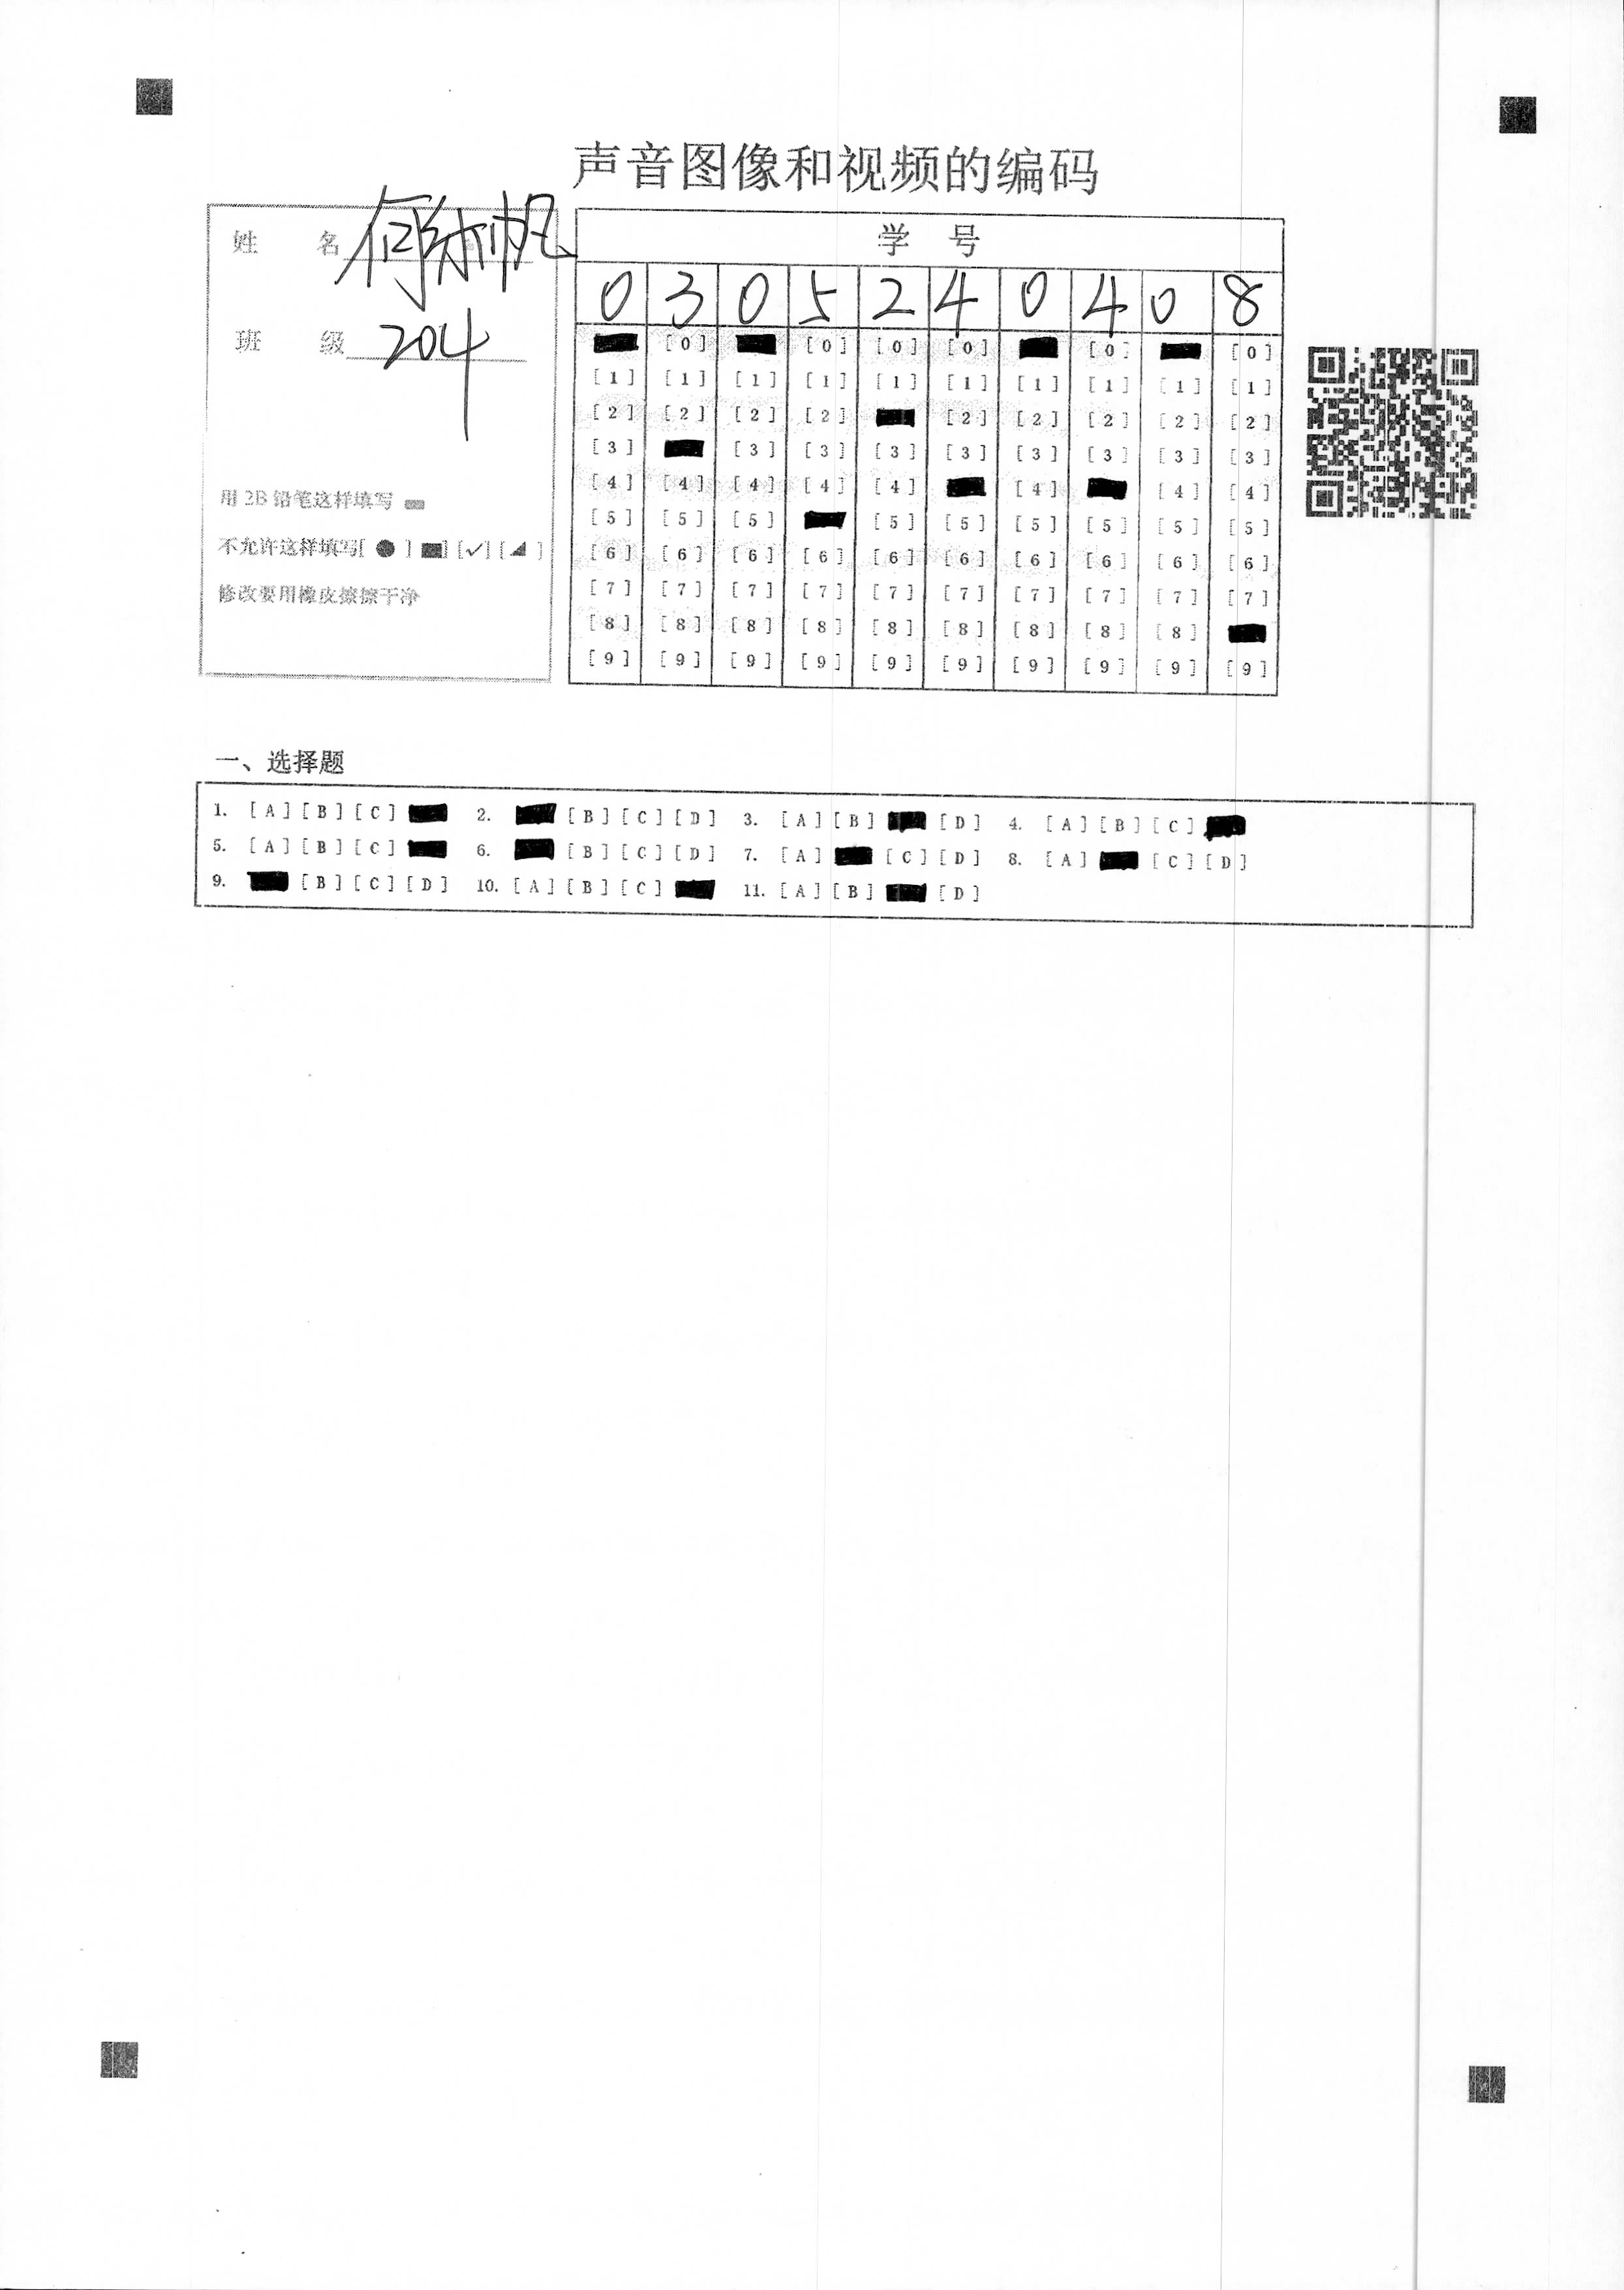 声音图像和视频的编码
姓 名 何
班 级 204
用 2B 铅笔这样填写
不允许这样填写[ ● ] [■] [✓] [◢ ]
修改要用橡皮擦擦干净
学 号
0 3 0 5 2 4 0 4 0 8
[0] [0] [0] [0] [0] [0]
[1] [1] [1] [1] [1] [1] [1] [1] [1] [1]
[2] [2] [2] [2] [2] [2] [2] [2] [2]
[3] [3] [3] [3] [3] [3] [3] [3] [3]
[4] [4] [4] [4] [4] [4] [4] [4]
[5] [5] [5] [5] [5] [5] [5] [5] [5]
[6] [6] [6] [6] [6] [6] [6] [6] [6] [6]
[7] [7] [7] [7] [7] [7] [7] [7] [7] [7]
[8] [8] [8] [8] [8] [8] [8] [8] [8]
[9] [9] [9] [9] [9] [9] [9] [9] [9] [9]
一、选择题
1. [A] [B] [C] 2. [B] [C] [D] 3. [A] [B] [D] 4. [A] [B] [C]
5. [A] [B] [C] 6. [B] [C] [D] 7. [A] [C] [D] 8. [A] [C] [D]
9. [B] [C] [D] 10. [A] [B] [C] 11. [A] [B] [D]